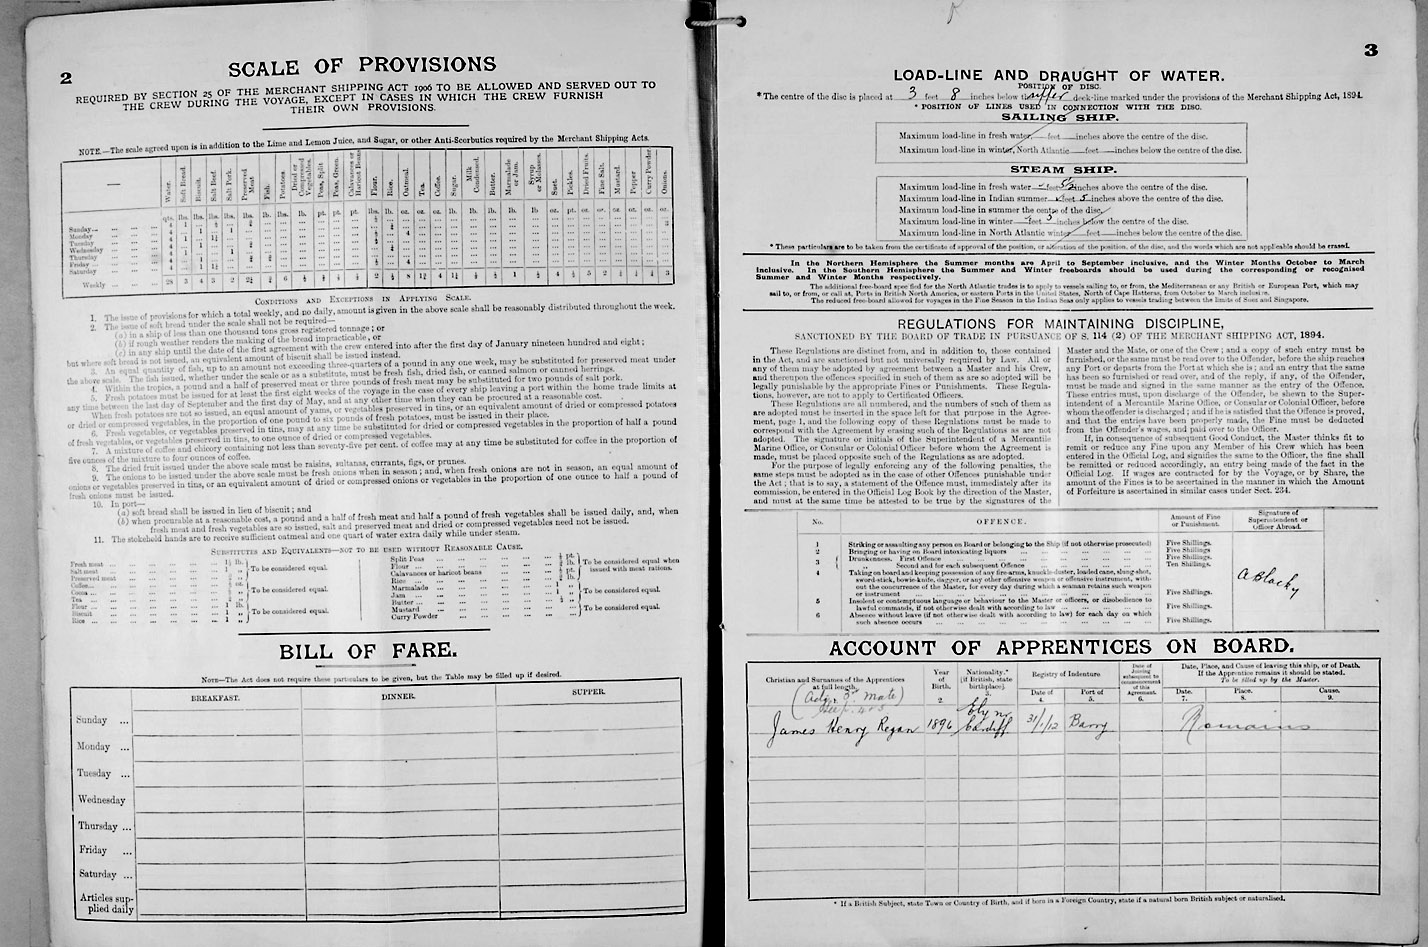 2
SCALE OF PROVISIONS
REQUIRED BY SECTION 25 OF THE MERCHANT SHIPPING ACT 1906 TO BE ALLOWED AND SERVED OUT TO
THE CREW DURING THE VOYAGE, EXCEPT IN CASES IN WHICH THE CREW FURNISH
THEIR OWN PROVISIONS.
NOTE.—The scale agreed upon is in addition to the Lime and Lemon Juice, and Sugar, or other Anti-Scorbutics required by the Merchant Shipping Acts.
Water. Soft Bread. Biscuit. Salt Beef. Salt Pork. Preserved Meat. Fish. Potatoes. Dried or Compressed Vegetables. Peas, Split Peas, Green. Calavances or Haricot Beans Flour. Rice. Oatmeal. Tea. Coffee. Sugar. Milk Condensed. Butter. Marmalade or Jam. Syrup or Molasses. Suet. Pickles. Dried Fruits. Fine Salt. Mustard. Pepper Curry Powder Onions.
Sunday
Monday
Tuesday
Wednesday
Thursday
Friday
Saturday
Weekly
CONDITIONS AND EXCEPTIONS IN APPLYING SCALE.
1. The issue of provisions for which a total weekly, and no daily, amount is given in the above scale shall be reasonably distributed throughout the week.
2. The issue of soft bread under the scale shall not be required—
(a) in a ship of less than one thousand tons gross registered tonnage; or
(b) if rough weather renders the making of the bread impracticable, or
(c) in any ship until the date of the first agreement with the crew entered into after the first day of January nineteen hundred and eight;
but where soft bread is not issued, an equivalent amount of biscuit shall be issued instead.
3. An equal quantity of fish, up to an amount not exceeding three-quarters of a pound in any one week, may be substituted for preserved meat under
the above scale. The fish issued, whether under the scale or as a substitute, must be fresh fish, dried fish, or canned salmon or canned herrings.
4. Within the tropics, a pound and a half of preserved meat or three pounds of fresh meat may be substituted for two pounds of salt pork.
5. Fresh potatoes must be issued for at least the first eight weeks of the voyage in the case of every ship leaving a port within the home trade limits at
any time between the last day of September and the first day of May, and at any other time when they can be procured at a reasonable cost.
When fresh potatoes are not so issued, an equal amount of yams, or vegetables preserved in tins, or an equivalent amount of dried or compressed potatoes
or dried or compressed vegetables, in the proportion of one pound to six pounds of fresh potatoes, must be issued in their place.
6. Fresh vegetables, or vegetables preserved in tins, may at any time be substituted for dried or compressed vegetables in the proportion of half a pound
of fresh vegetables, or vegetables preserved in tins, to one ounce of dried or compressed vegetables.
7. A mixture of coffee and chicory containing not less than seventy-five per cent. of coffee may at any time be substituted for coffee in the proportion of
five ounces of the mixture to four ounces of coffee.
8. The dried fruit issued under the above scale must be raisins, sultanas, currants, figs, or prunes.
9. The onions to be issued under the above scale must be fresh onions when in season; and, when fresh onions are not in season, an equal amount of
onions or vegetables preserved in tins, or an equivalent amount of dried or compressed onions or vegetables in the proportion of one ounce to half a pound of
fresh onions must be issued.
10. In port—
(a) soft bread shall be issued in lieu of biscuit; and
(b) when procurable at a reasonable cost, a pound and a half of fresh meat and half a pound of fresh vegetables shall be issued daily, and, when
fresh meat and fresh vegetables are so issued, salt and preserved meat and dried or compressed vegetables need not be issued.
11. The stokehold hands are to receive sufficient oatmeal and one quart of water extra daily while under steam.
SUBSTITUTES AND EQUIVALENTS—NOT TO BE USED WITHOUT REASONABLE CAUSE.
Fresh meat
Salt meat
Preserved meat
To be considered equal.
Coffee
Cocoa
Tea
To be considered equal.
Flour
Biscuit
Rice
To be considered equal.
Split Peas
Flour
Calavances or haricot beans
Rice
To be considered equal when issued with meat rations.
Marmalade
Jam
Butter
To be considered equal.
Mustard
Curry Powder
To be considered equal.
BILL OF FARE.
NOTE—The Act does not require these particulars to be given, but the Table may be filled up if desired.
BREAKFAST. DINNER. SUPPER.
Sunday ...
Monday ...
Tuesday ...
Wednesday
Thursday ...
Friday ...
Saturday ...
Articles supplied daily
3
LOAD-LINE AND DRAUGHT OF WATER.
POSITION OF DISC.
*The centre of the disc is placed at 3 feet 8 inches below the upper deck-line marked under the provisions of the Merchant Shipping Act, 1894.
* POSITION OF LINES USED IN CONNECTION WITH THE DISC.
SAILING SHIP.
Maximum load-line in fresh water, feet inches above the centre of the disc.
Maximum load-line in winter, North Atlantic feet inches below the centre of the disc.
STEAM SHIP.
Maximum load-line in fresh water feet 5½ inches above the centre of the disc.
Maximum load-line in Indian summer feet 5 inches above the centre of the disc.
Maximum load-line in summer the centre of the disc.
Maximum load-line in winter feet 5 inches below the centre of the disc.
Maximum load-line in North Atlantic winter feet inches below the centre of the disc.
* These particulars are to be taken from the certificate of approval of the position, or alteration of the position, of the disc, and the words which are not applicable should be erased.
In the Northern Hemisphere the Summer months are April to September inclusive, and the Winter Months October to March
inclusive. In the Southern Hemisphere the Summer and Winter freeboards should be used during the corresponding or recognised
Summer and Winter Months respectively.
The additional free-board specified for the North Atlantic trades is to apply to vessels sailing to, or from, the Mediterranean or any British or European Port, which may
sail to, or from, or call at, Ports in British North America, or eastern Ports in the United States, North of Cape Hatteras, from October to March inclusive.
The reduced free-board allowed for voyages in the Fine Season in the Indian Seas only applies to vessels trading between the limits of Suez and Singapore.
REGULATIONS FOR MAINTAINING DISCIPLINE,
SANCTIONED BY THE BOARD OF TRADE IN PURSUANCE OF S. 114 (2) OF THE MERCHANT SHIPPING ACT, 1894.
These Regulations are distinct from, and in addition to, those contained
in the Act, and are sanctioned but not universally required by Law. All or
any of them may be adopted by agreement between a Master and his Crew,
and thereupon the offences specified in such of them as are so adopted will be
legally punishable by the appropriate Fines or Punishments. These Regulations,
however, are not to apply to Certificated Officers.
These Regulations are all numbered, and the numbers of such of them as
are adopted must be inserted in the space left for that purpose in the Agreement,
page 1, and the following copy of these Regulations must be made to
correspond with the Agreement by erasing such of the Regulations as are not
adopted. The signature or initials of the Superintendent of a Mercantile
Marine Office, or Consular or Colonial Officer before whom the Agreement is
made, must be placed opposite such of the Regulations as are adopted.
For the purpose of legally enforcing any of the following penalties, the
same steps must be adopted as in the case of other Offences punishable under
the Act; that is to say, a statement of the Offence must, immediately after its
commission, be entered in the Official Log Book by the direction of the Master,
and must at the same time be attested to be true by the signatures of the
Master and the Mate, or one of the Crew; and a copy of such entry must be
furnished, or the same must be read over to the Offender, before the ship reaches
any Port or departs from the Port at which she is; and an entry that the same
has been so furnished or read over, and of the reply, if any, of the Offender,
must be made and signed in the same manner as the entry of the Offence.
These entries must, upon discharge of the Offender, be shewn to the Superintendent
of a Mercantile Marine Office, or Consular or Colonial Officer, before
whom the offender is discharged; and if he is satisfied that the Offence is proved,
and that the entries have been properly made, the Fine must be deducted
from the Offender's wages, and paid over to the Officer.
If, in consequence of subsequent Good Conduct, the Master thinks fit to
remit or reduce any Fine upon any Member of his Crew which has been
entered in the Official Log, and signifies the same to the Officer, the fine shall
be remitted or reduced accordingly, an entry being made of the fact in the
Official Log. If wages are contracted for by the Voyage, or by Share, the
amount of the Fines is to be ascertained in the manner in which the Amount
of Forfeiture is ascertained in similar cases under Sect. 234.
No. OFFENCE. Amount of Fine or Punishment. Signature of Superintendent or Officer Abroad.
1 Striking or assaulting any person on Board or belonging to the Ship (if not otherwise prosecuted) Five Shillings.
2 Bringing or having on Board intoxicating liquors Five Shillings.
3 Drunkenness. First Offence Five Shillings.
Second and for each subsequent Offence Ten Shillings.
4 Taking on board and keeping possession of any fire-arms, knuckle-duster, loaded cane, slung-shot,
sword-stick, bowie-knife, dagger, or any other offensive weapon or offensive instrument, without
the concurrence of the Master, for every day during which a seaman retains such weapon
or instrument Five Shillings.
5 Insolent or contemptuous language or behaviour to the Master or officers, or disobedience to
lawful commands, if not otherwise dealt with according to law Five Shillings.
6 Absence without leave (if not otherwise dealt with according to law) for each day on which
such absence occurs Five Shillings.
ACCOUNT OF APPRENTICES ON BOARD.
Christian and Surnames of the Apprentices at full length. Year of Birth. 2. Nationality.* (if British, state birthplace). 3. Registry of Indenture Date of 4. Port of 5. Date of Joining subsequent to commencement of this Agreement. 6. Date, Place, and Cause of leaving this ship, or of Death. If the Apprentice remains it should be stated. To be filled up by the Master. Date. 7. Place. 8. Cause. 9.
(Actg. 3rd Mate)
James Henry Regan 1896 Ely nr Cardiff 31/1/12 Barry Remains
* If a British Subject, state Town or Country of Birth, and if born in a Foreign Country, state if a natural born British subject or naturalised.